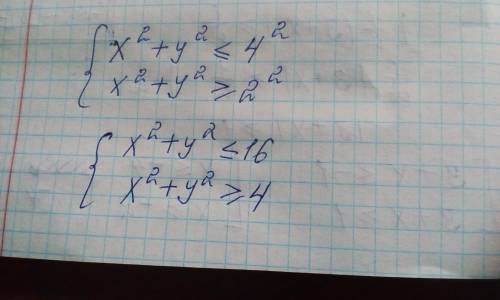 x² + y² ≤ 4²
x² + y² ≥ 2²
x² + y² ≤ 16
x² + y² ≥ 4